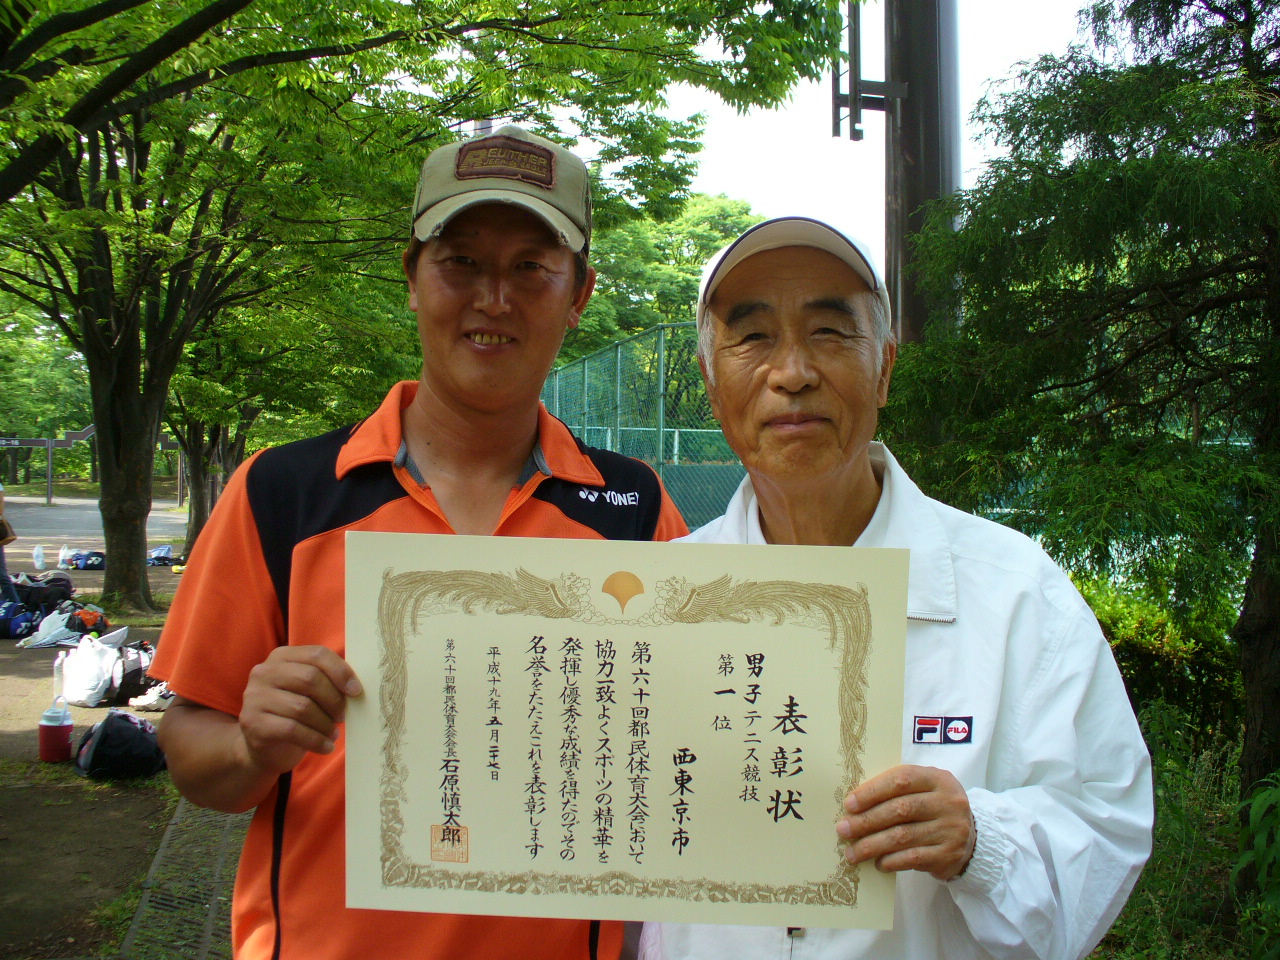 表彰状
男子テニス競技
第一位
西東京市
第六十回都民体育大会において
協力一致よくスポーツの精華を
発揮し優秀な成績を得たのでその
名誉をたたえこれを表彰します
平成十九年五月二十七日
第六十回都民体育大会会長石原慎太郎
YONEX
FILA